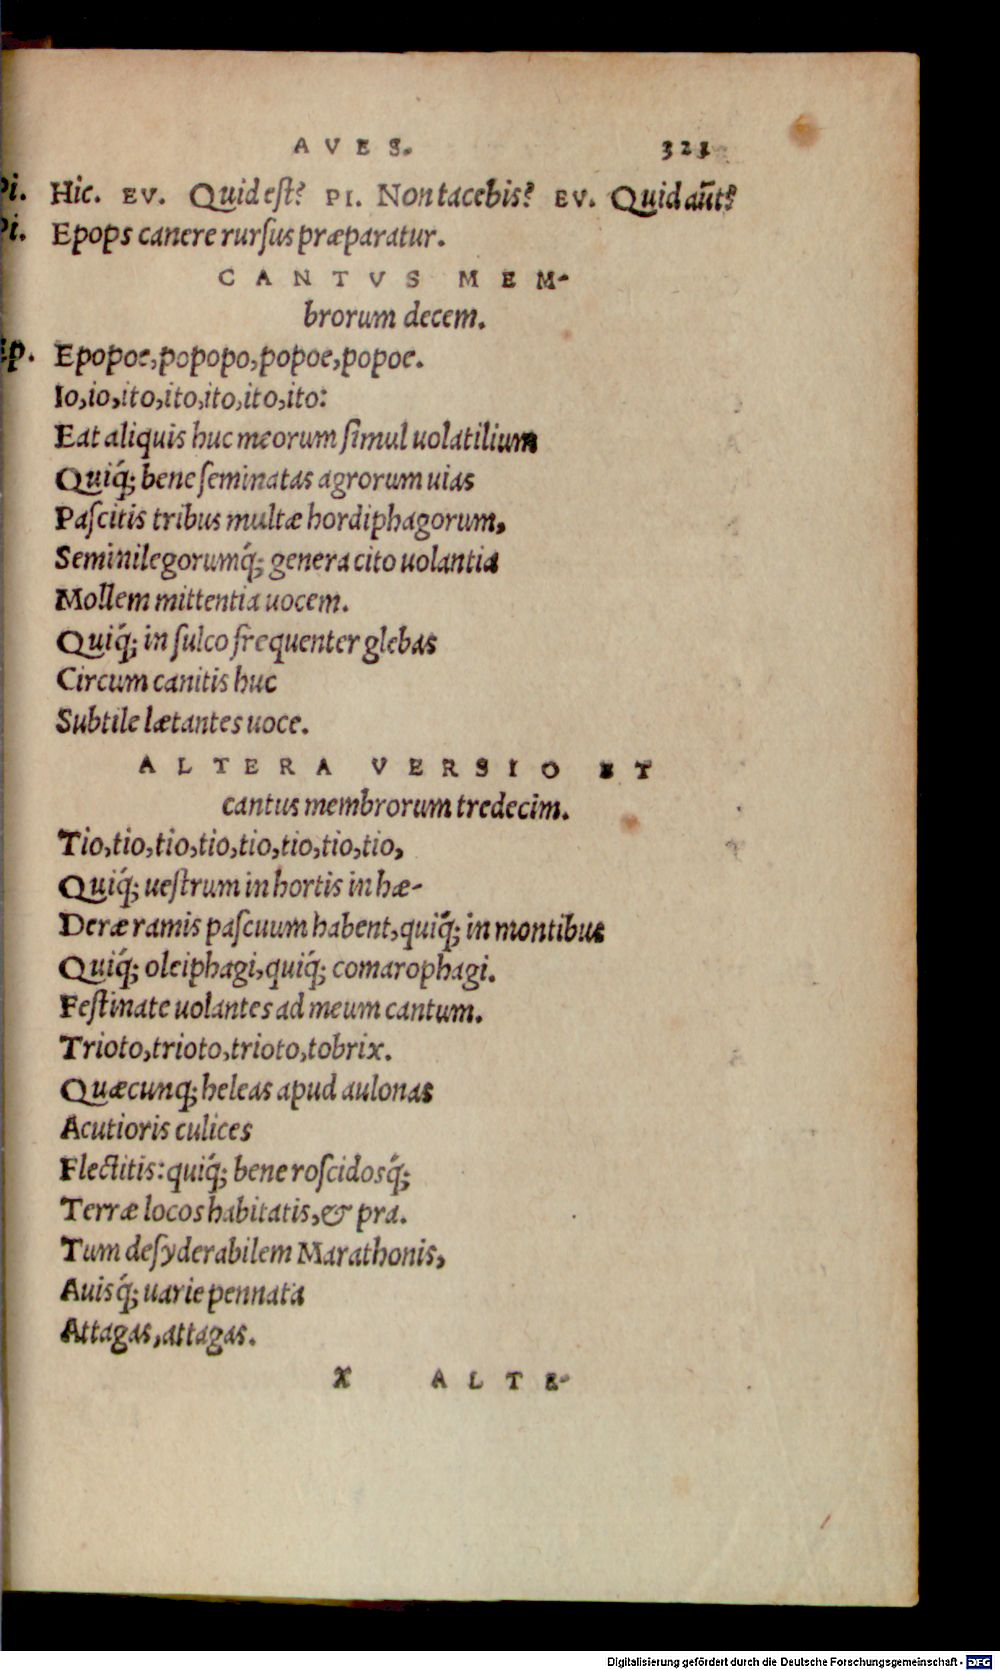 AVES. 321
Pi. Hic. EV. Quid eſt? PI. Non tacebis? EV. Quid aūt?
Pi. Epops canere rurſus præparatur.
CANTVS MEM-
brorum decem.
Ep. Epopoe, popopo, popoe, popoe.
Io, io, ito, ito, ito, ito, ito:
Eat aliquis huc meorum ſimul uolatilium
Quiq́; bene ſeminatas agrorum uias
Paſcitis tribus multæ hordiphagorum,
Seminilegorumq́; genera cito uolantia
Mollem mittentia uocem.
Quiq́; in ſulco frequenter glebas
Circum canitis huc
Subtile lætantes uoce.
ALTERA VERSIO ET
cantus membrorum tredecim.
Tio, tio, tio, tio, tio, tio, tio, tio,
Quiq́; ueſtrum in hortis in hæ-
Deræ ramis paſcuum habent, quiq́; in montibus
Quiq́; oleiphagi, quiq́; comarophagi.
Feſtinate uolantes ad meum cantum.
Trioto, trioto, trioto, tobrix.
Quæcunq; heleas apud aulonas
Acutioris culices
Flectitis: quiq́; bene roſcidosq́;
Terræ locos habitatis, & pra.
Tum deſyderabilem Marathonis,
Auisq́; uarie pennata
Attagas, attagas.
X ALTE-
Digitalisierung gefördert durch die Deutsche Forschungsgemeinschaft - DFG